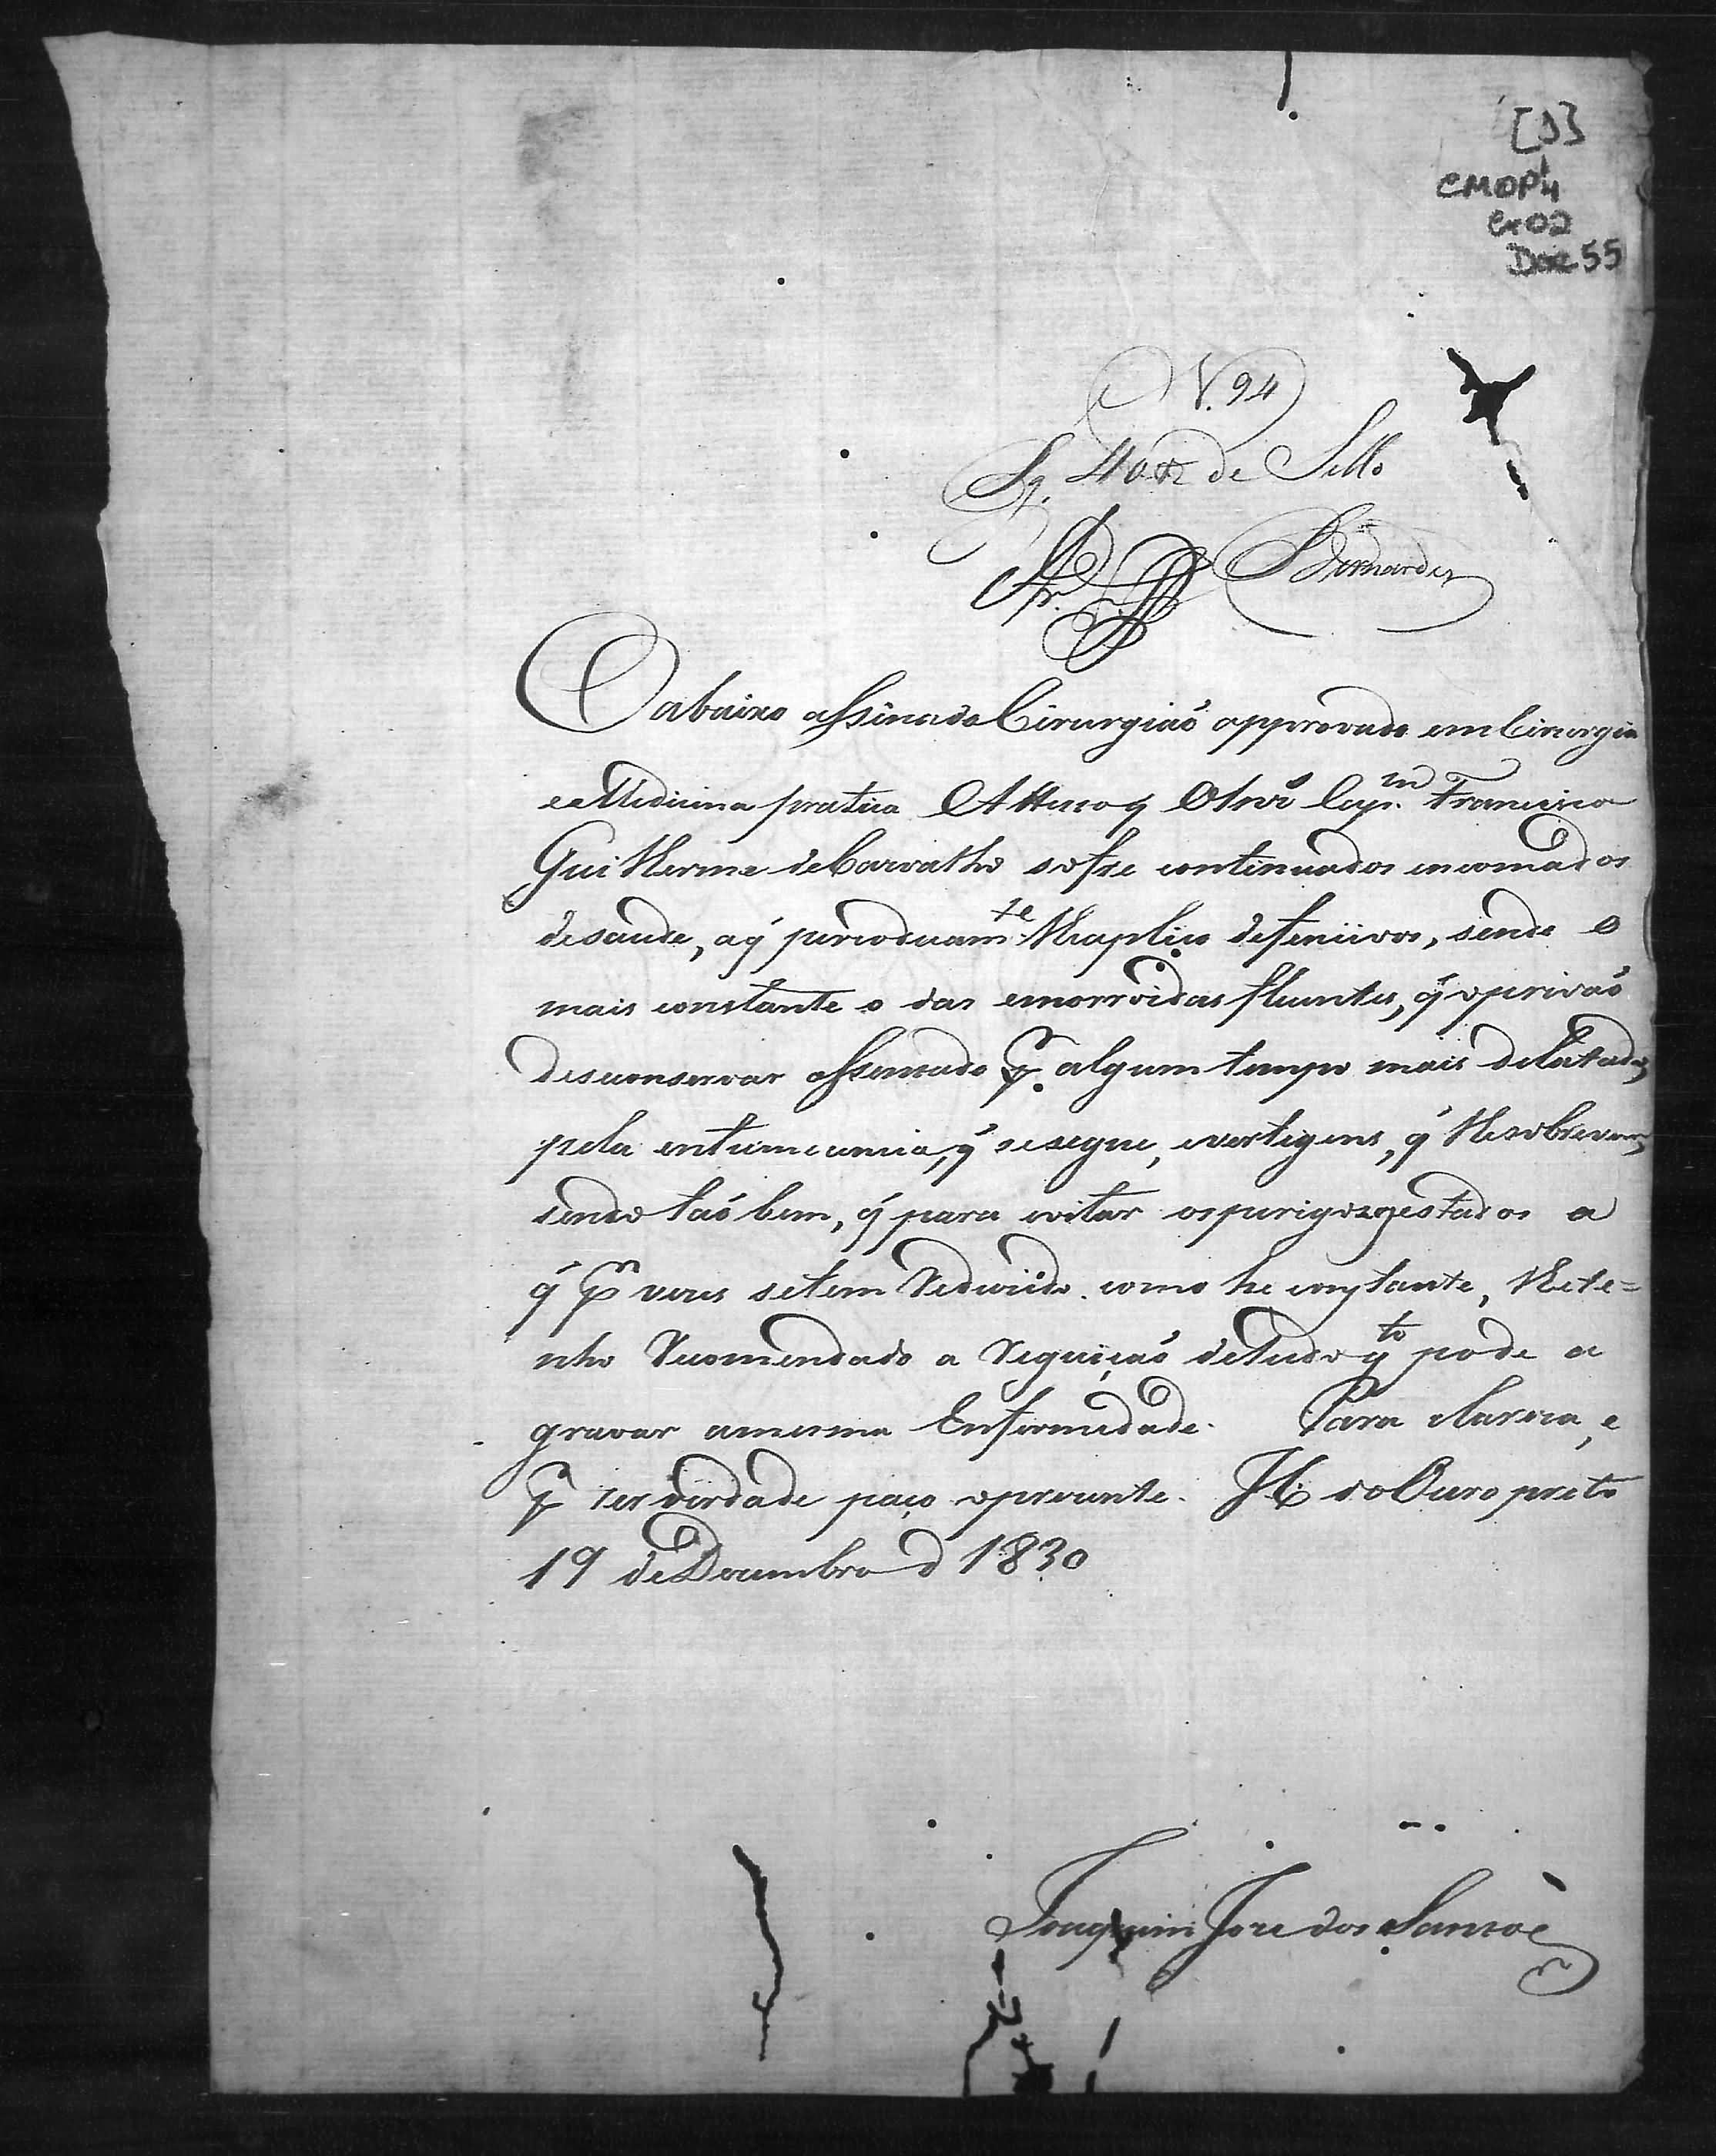 [1]
CMOP 4
Cx 02
Doc 55
N. 94
Pg. 40 rs de Sello
Bernardes
O abaixo assinado Cirurgiaõ approvado em Cirurgia
e Medicina pratica Attesto q̃ O Snr̃ Cap.m Francisco
Guilherme de Carvalho sofre continuados encomados
de saude, a q̃ periodicam.te lhe aplico defencivos, sendo o
mais constante o das emorroidas fluentes, q̃ o privaõ
desconservar assentado p.r algum tempo mais delatado,
pela entumecencia, q̃ se segue, e vertigens, q̃ lhe sobrevem,
sendo taõ bem, q̃ para evitar os perigozos estados a
q̃ p.r vezes se tem reduzido como he constante, lhe te=
nho recomendado a regeiçaõ de tudo q.to pode a
gravar a mesma Enfermidade. Para clareza, e
p.r ser verdade paço o prezente. I C do Ouro preto
19 de Dezembro d 1830
Joaquim Jose dos Santos